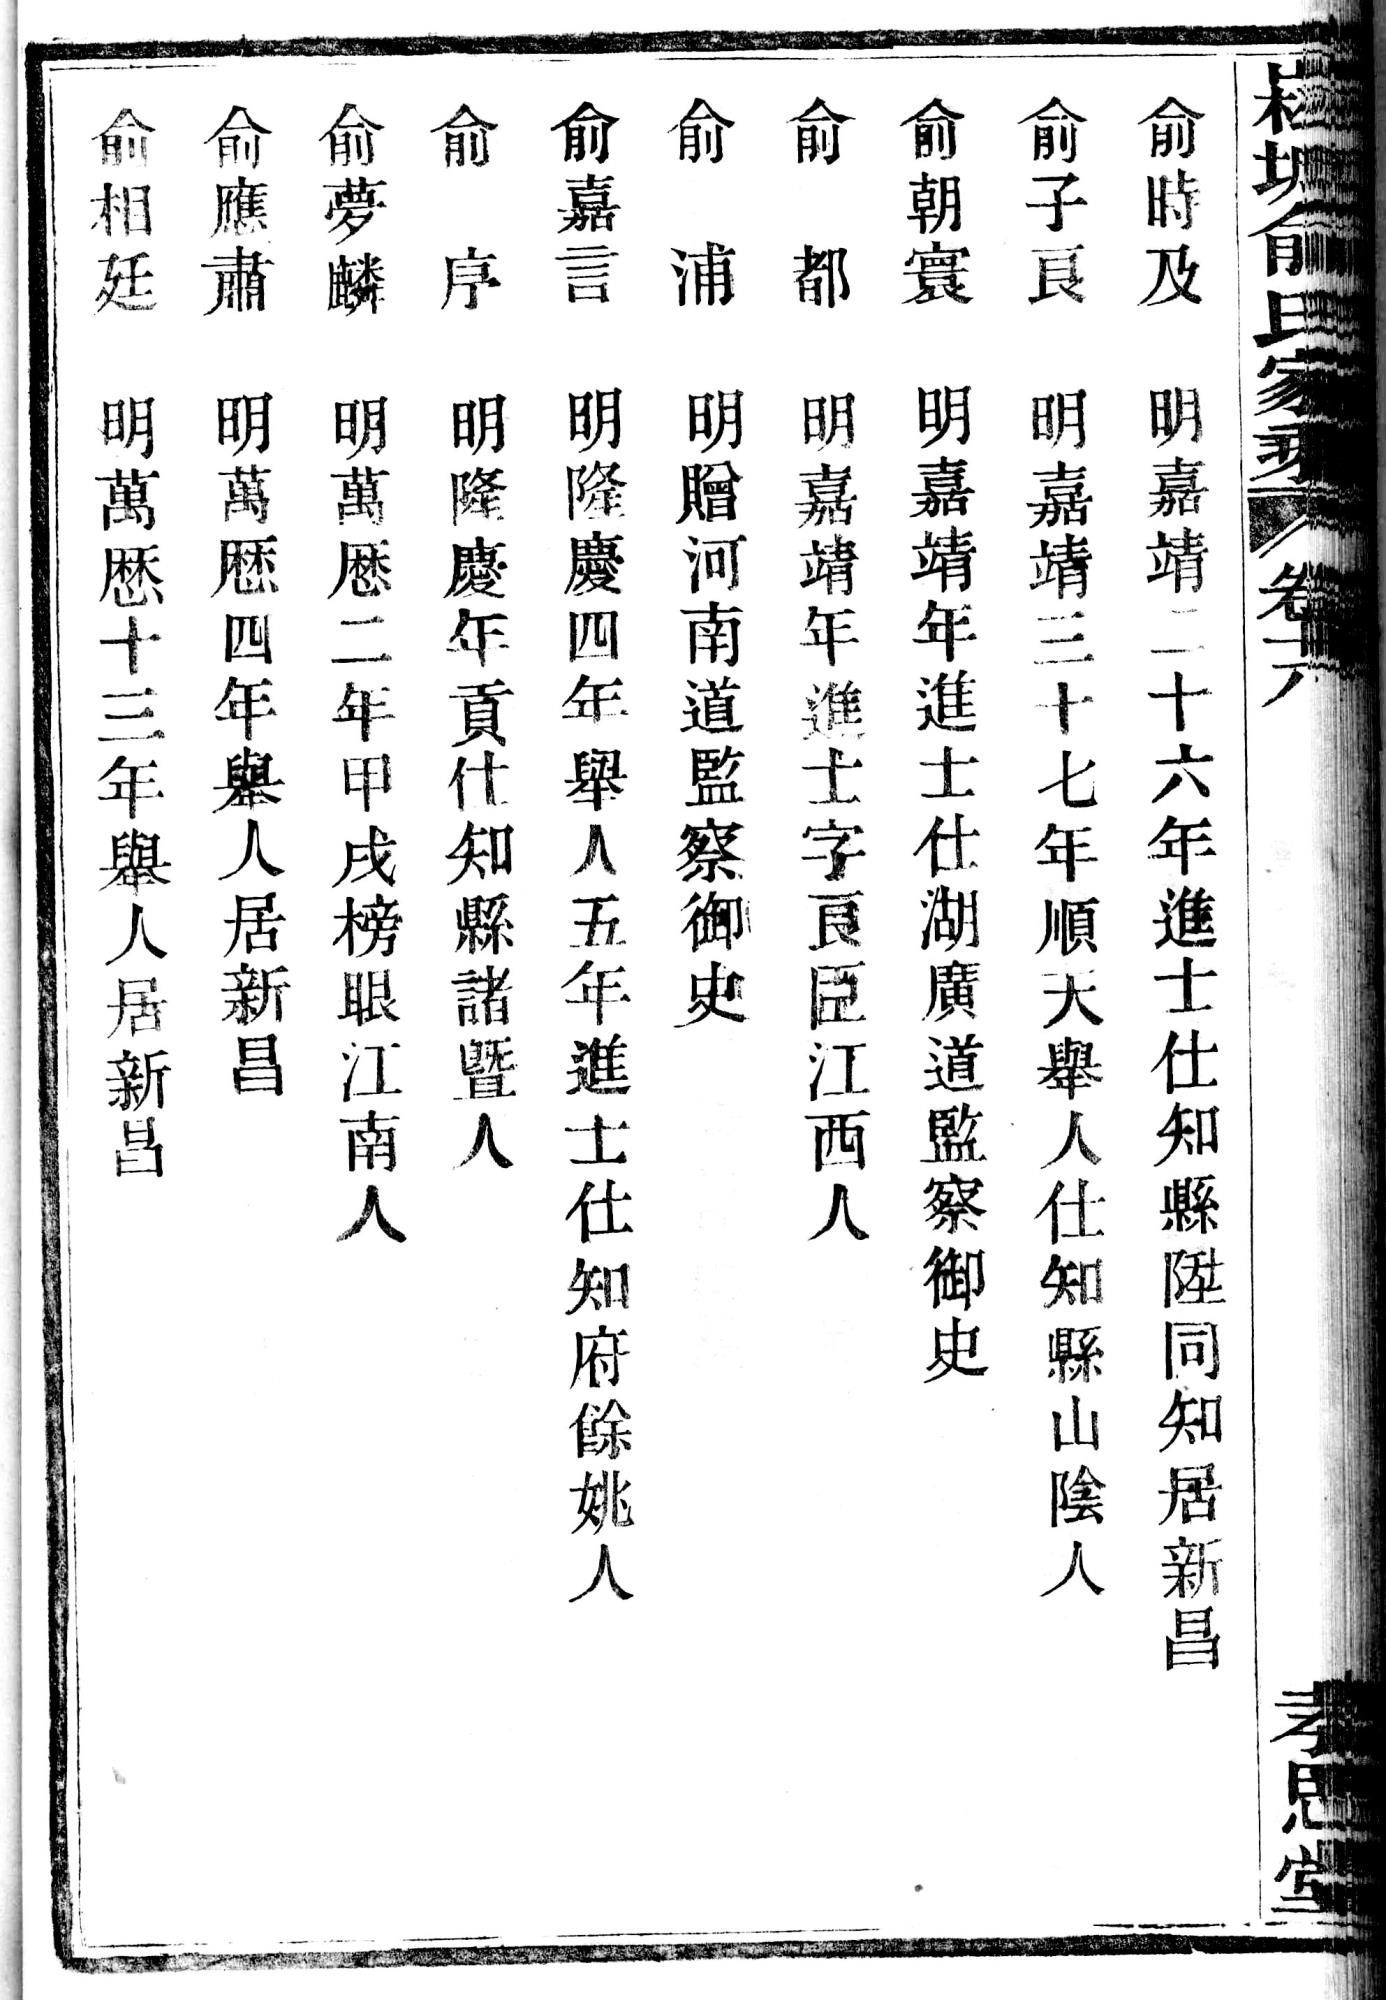 俞氏家乘 卷十六 孝思堂
俞時及 明嘉靖二十六年進士仕知縣陞同知居新昌
俞子良 明嘉靖三十七年順天舉人仕知縣山陰人
俞朝寰 明嘉靖年進士仕湖廣道監察御史
俞都 明嘉靖年進士字良臣江西人
俞浦 明贈河南道監察御史
俞嘉言 明隆慶四年舉人五年進士仕知府餘姚人
俞序 明隆慶年貢仕知縣諸暨人
俞夢麟 明萬厯二年甲戌榜眼江南人
俞應肅 明萬厯四年舉人居新昌
俞相廷 明萬厯十三年舉人居新昌